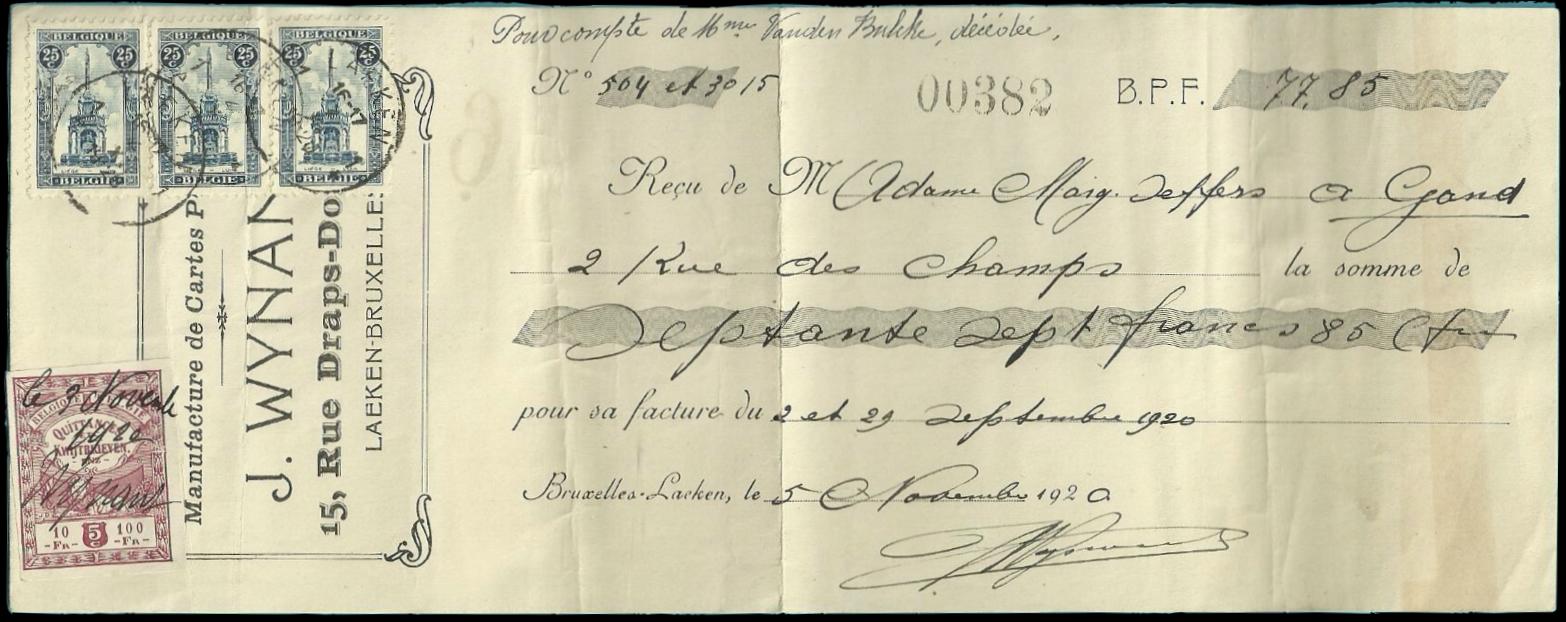 Pour compte de Mme Vanden Bulcke, décédée,
N° 504 et 3015 00382 B.P.F. 77,85
Reçu de Madame Marg. Seffers a Gand
2 Rue des Champs la somme de
Septante sept francs 85 Ctm
pour sa facture du 2 et 29 septembre 1920
Bruxelles-Laeken, le 5 Novembre 1920
Wynant
Manufacture de Cartes P
J. WYNAN
15, Rue Draps-Do
LAEKEN-BRUXELLES
BELGIQUE
25 25
C C
LIÉGE LUIK
BELGIË
BELGIQUE
25 25
C C
BELGIË
BELGIQUE
25 25
C C
BELGIË
LAEKEN
16-17
LAEKEN
le 3 Novembre
1920
Wynant
BELGIQUE
QUITTANCES
KWIJTBRIEVEN
10 5 100
-FR- C -FR-